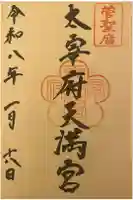 菅聖廟
太宰府天満宮
令和八年一月十六日